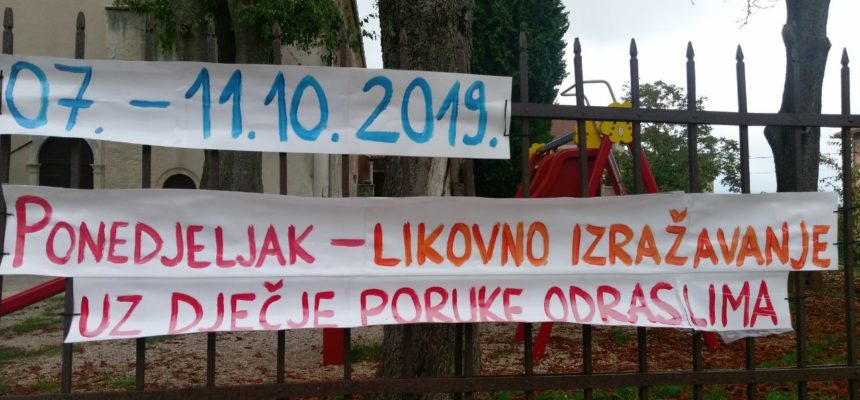 07. – 11.10. 2019.
PONEDJELJAK – LIKOVNO IZRAŽAVANJE
UZ DJEČJE PORUKE ODRASLIMA